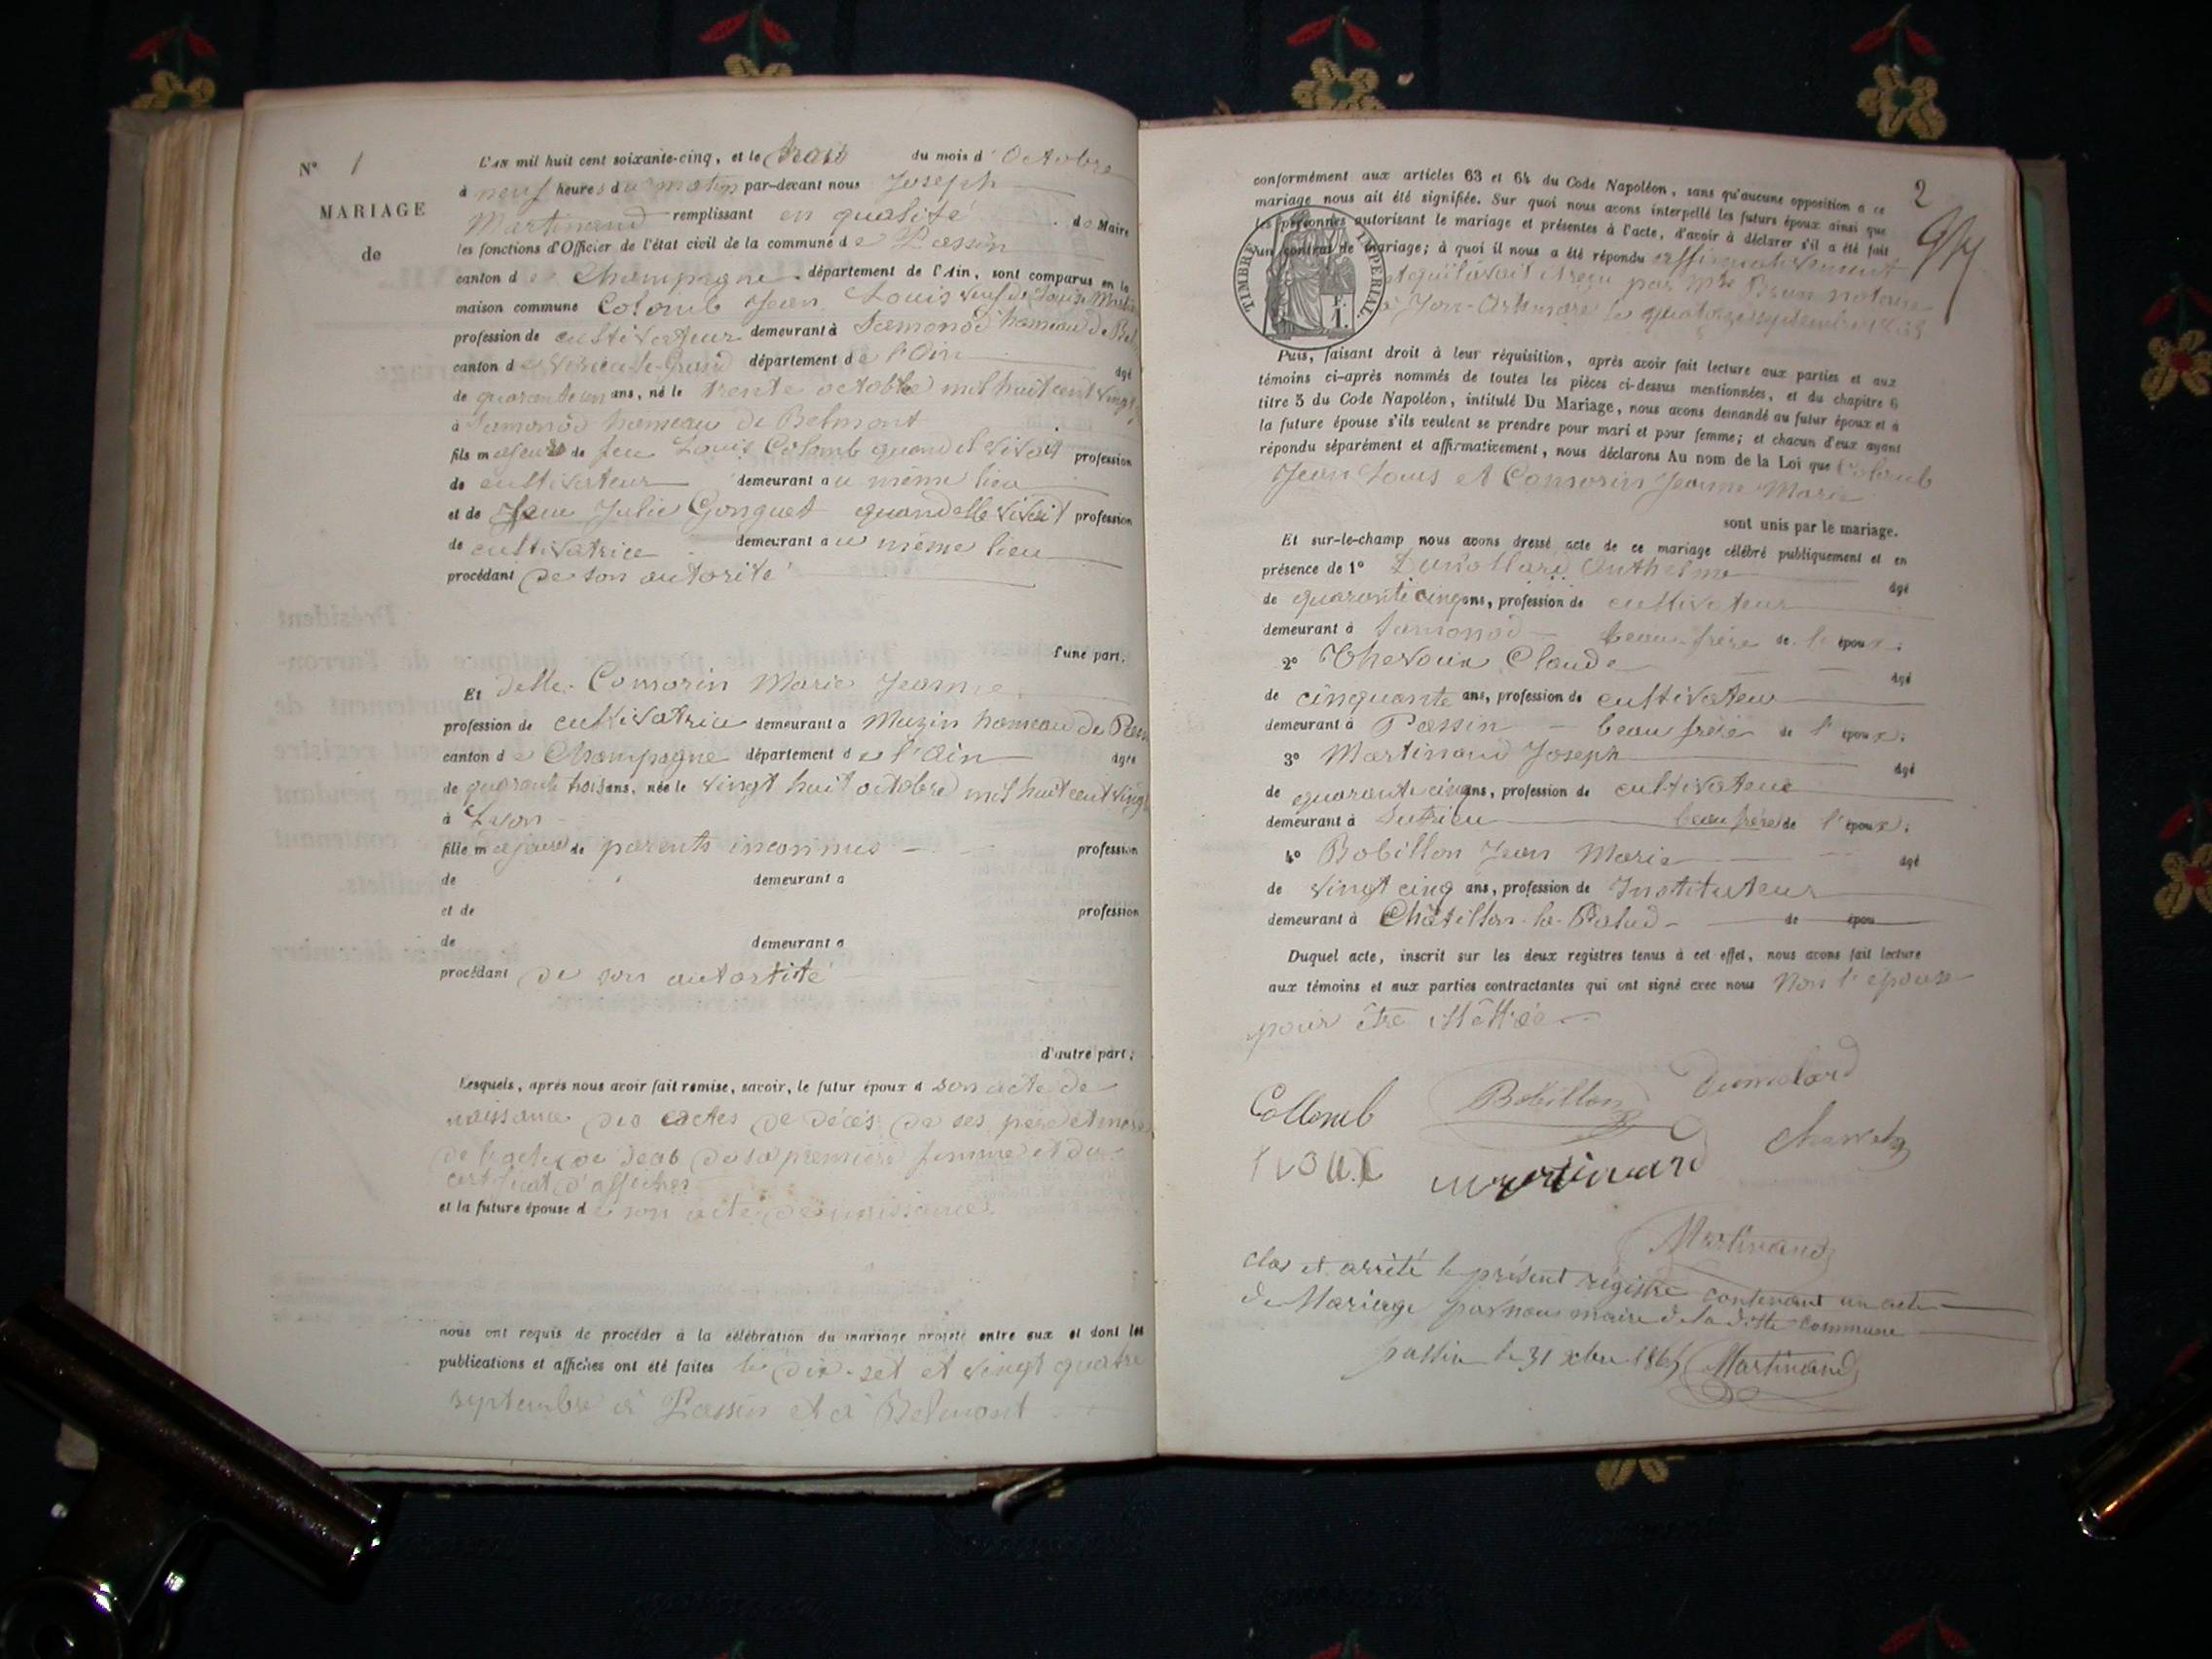 N° 1
MARIAGE
de
L'AN mil huit cent soixante-cinq, et le trois du mois d'Octobre
à neuf heures du matin par-devant nous Joseph
Martinand remplissant en qualité de Maire
les fonctions d'Officier de l'état civil de la commune de Passin
canton de Champagne département de l'Ain, sont comparus en la
maison commune Colomb Jean Louis veuf de Louise
profession de cultivateur demeurant à Samonod hameau de Bel
canton de Virieu-le-Grand département de l'Ain âgé
de quarante un ans, né le trente octobre mil huit cent vingt
à Samonod hameau de Belmont
fils majeur de feu Louis Colomb quand il vivait profession
de cultivateur demeurant au même lieu
et de feue Julie Gonguet quand elle vivait profession
de cultivatrice demeurant au même lieu
procédant de son autorité
d'une part.
Et delle Comorin Marie Jeanne
profession de cultivatrice demeurant à Muzin hameau de
canton de Champagne département de l'Ain âgée
de quarante trois ans, née le vingt huit octobre mil huit cent vingt
à Lyon
fille majeure de parents inconnus profession
de demeurant à
et de profession
de demeurant à
procédant de son autortité
d'autre part;
Lesquels, après nous avoir fait remise, savoir, le futur époux d son acte de
naissance des actes de décès de ses père et mère
de l'acte de de sa première femme et du
certificat d'affiches
et la future épouse de son acte de naissance
nous ont requis de procéder à la célébration du mariage projeté entre eux et dont les
publications et affiches ont été faites le dix-set et vingt quatre
septembre à Passin et à Belmont
2
conformément aux articles 63 et 64 du Code Napoléon, sans qu'aucune opposition à ce
mariage nous ait été signifiée. Sur quoi nous avons interpellé les futurs époux ainsi que
les personnes autorisant le mariage et présentes à l'acte, d'avoir à déclarer s'il a été fait
un contrat de mariage; à quoi il nous a été répondu affirmativement
et qu'il avait été reçu par Mtre Brun notaire
à Yon-Artemare le quatorze septembre 1865
TIMBRE IMPERIAL.
F.
1.
Puis, faisant droit à leur réquisition, après avoir fait lecture aux parties et aux
témoins ci-après nommés de toutes les pièces ci-dessus mentionnées, et du chapitre 6
titre 5 du Code Napoléon, intitulé Du Mariage, nous avons demandé au futur époux et à
la future épouse s'ils veulent se prendre pour mari et pour femme; et chacun d'eux ayant
répondu séparément et affirmativement, nous déclarons Au nom de la Loi que Colomb
Jean Louis et Comorin Jeanne Marie
sont unis par le mariage.
Et sur-le-champ nous avons dressé acte de ce mariage célébré publiquement et en
présence de 1° Anthelme âgé
de quarante cinq ans, profession de cultivateur
demeurant à Samonod beau-frère de l'époux;
2° Claude âgé
de cinquante ans, profession de cultivateur
demeurant à Passin beau frère de l'époux;
3° Martinand Joseph âgé
de quarante cinq ans, profession de cultivateur
demeurant à Sutrieu beau frère de l'époux;
4° Bobillon Jean Marie âgé
de vingt cinq ans, profession de Instituteur
demeurant à Châtillon-la-Palud de épou
Duquel acte, inscrit sur les deux registres tenus à cet effet, nous avons fait lecture
aux témoins et aux parties contractantes qui ont signé avec nous Non l'epouse
pour être illettrée
Collomb Bobillon Dumolard
martinand
Martinand
clos et arrêté le présent régistre contenant un acte
de Mariage par nous maire de la ditte commune
passin le 31 xbre 1865 Martinand